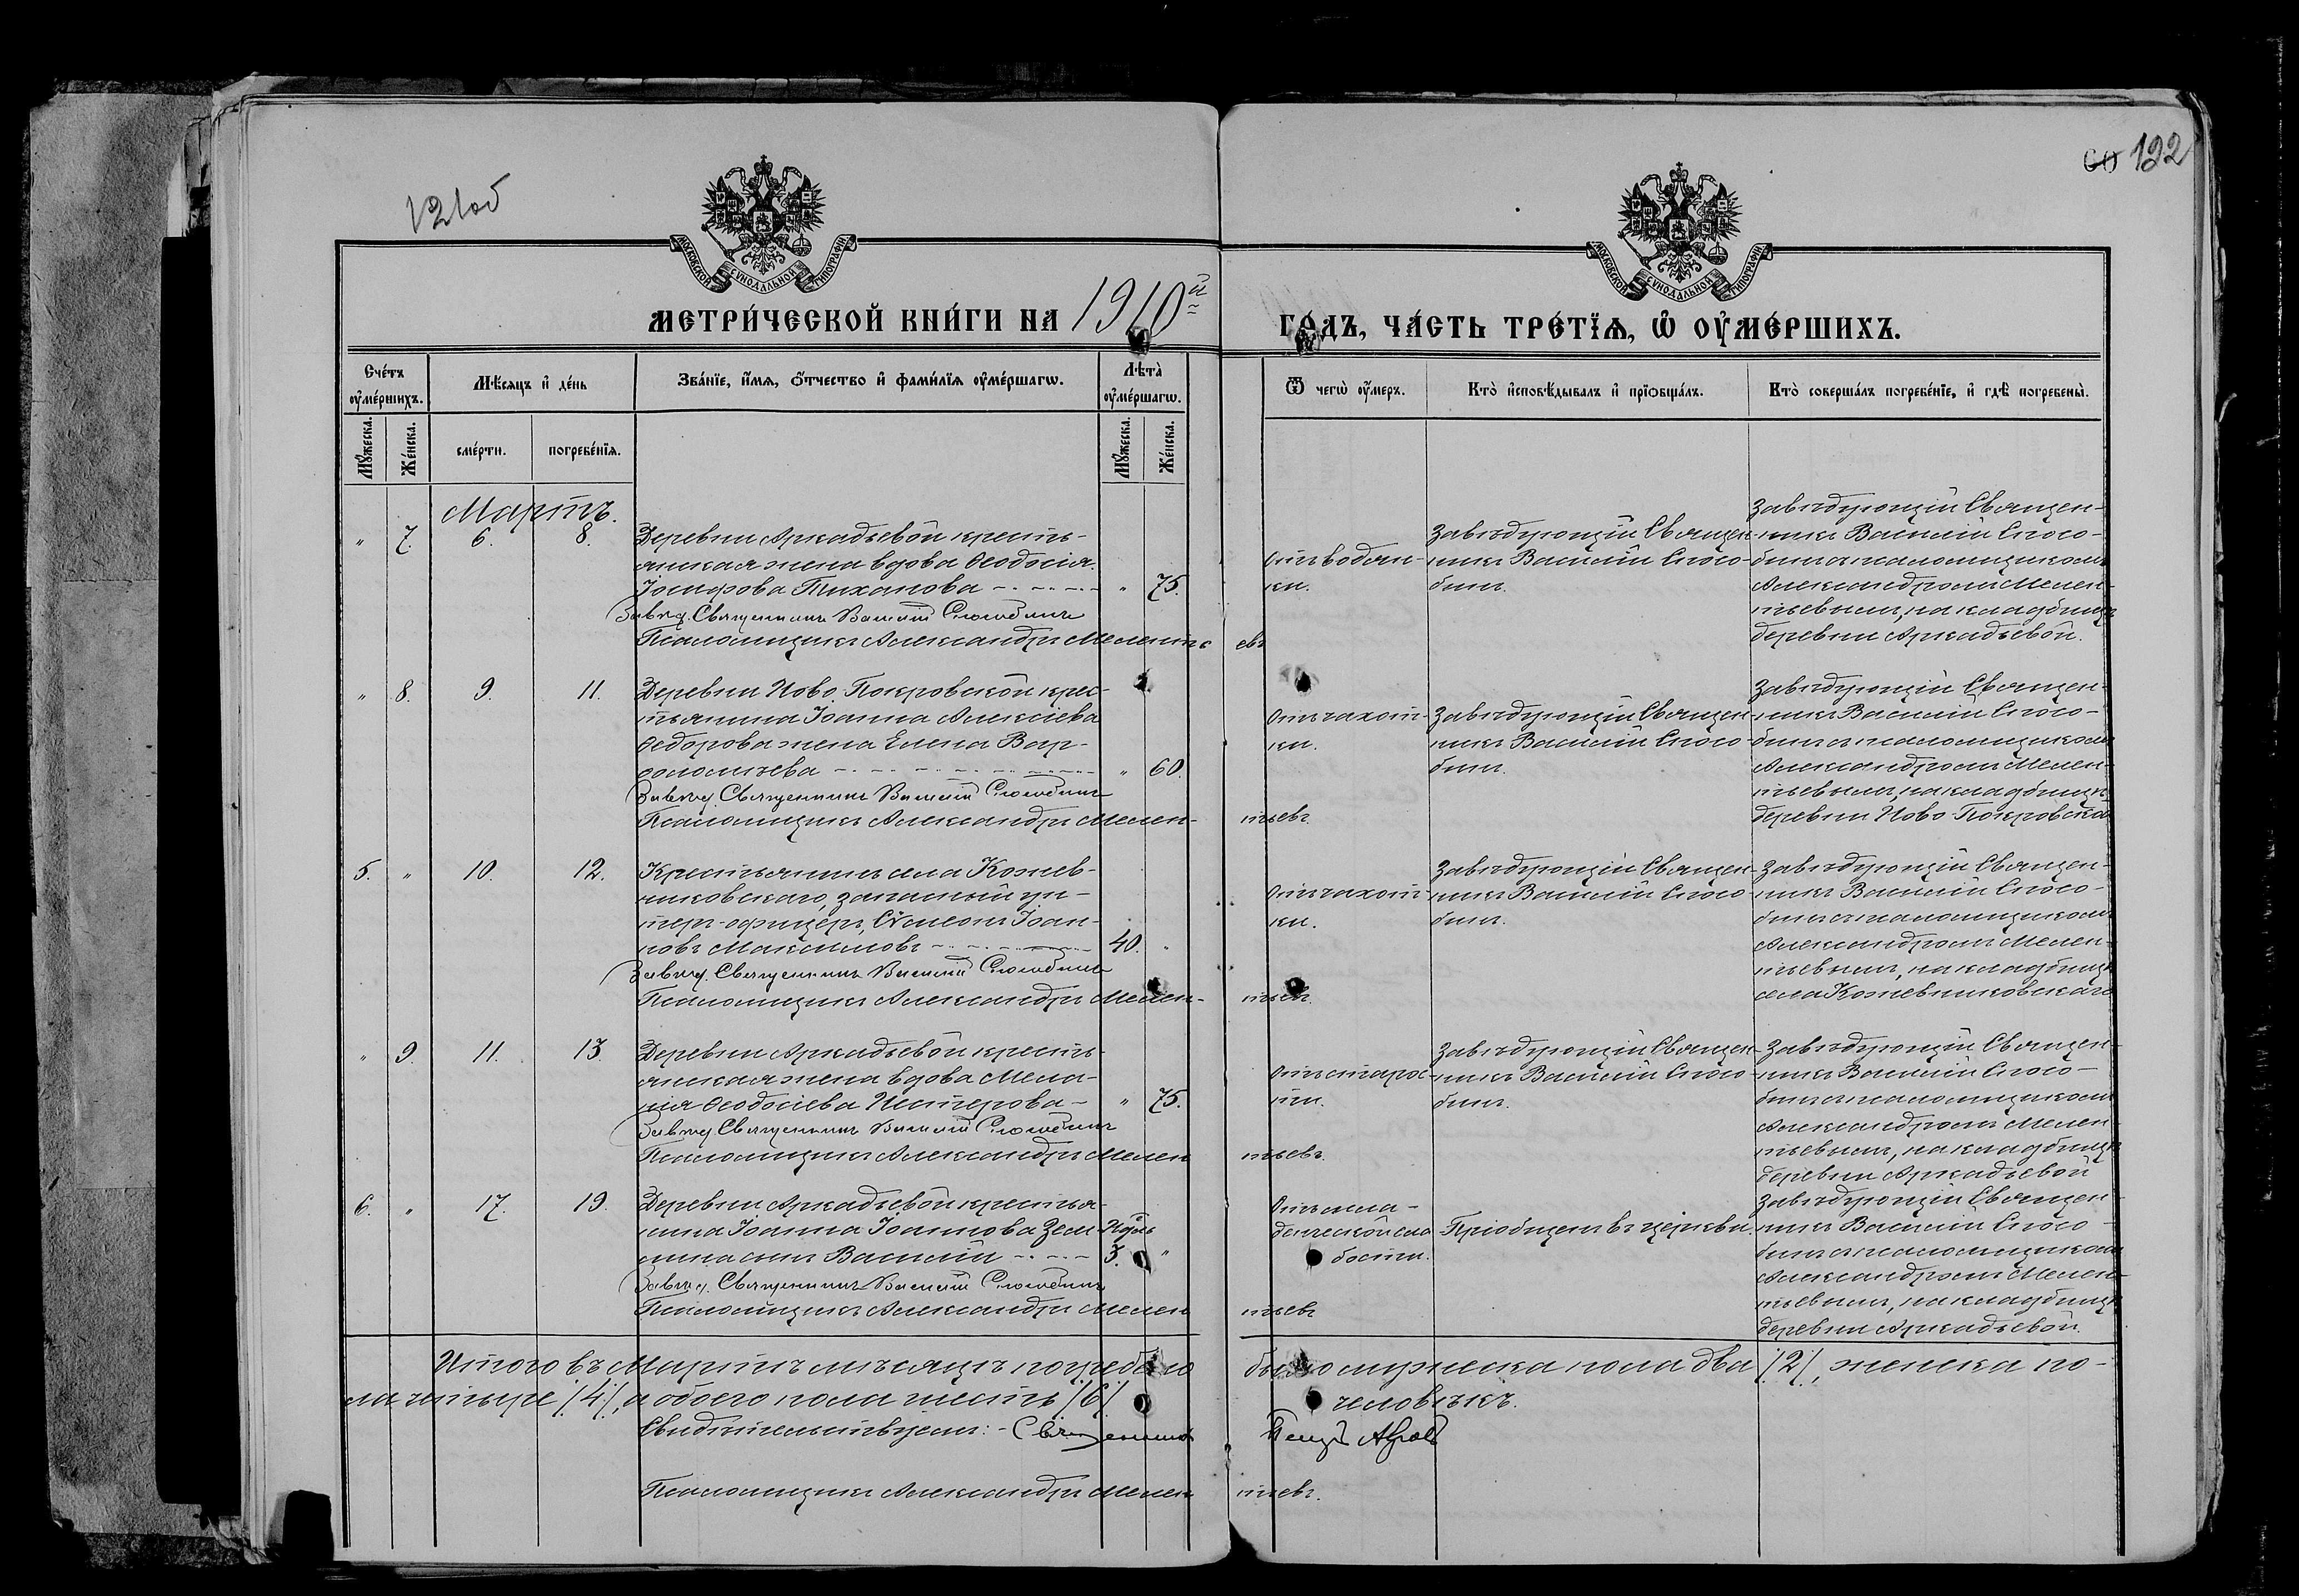 121об
122
МОСКОВСКОЙ СѴНОДАЛЬНОЙ ТИПОГРАФІИ
МОСКОВСКОЙ СѴНОДАЛЬНОЙ ТИПОГРАФІИ
МЕТРИ́ЧЕСКОЙ КНИ́ГИ НА 1910й
ГО́ДЪ, ЧА́СТЬ ТРЕ́ТЇѦ, Ѡ҆ ОУ҆МЕ́РШИХЪ.
Сче́тъ оу҆ме́ршихъ.
Мѣ́сяцъ и҆ де́нь
Зва́нїе, и҆́мѧ, ѻ҆́тчество и҆ фами́лїѧ оу҆ме́ршагѡ.
Лѣта̀ оу҆ме́ршагѡ.
Ѿ чегѡ̀ оу҆́меръ.
Кто̀ и҆сповѣ́дывалъ и҆ прїѡбща́лъ.
Кто̀ соверша́лъ погребе́нїе, и҆ гдѣ̀ погребены̀.
Мꙋ́жеска.
Же́нска.
сме́рти.
погребе́нїѧ.
Мꙋ́жеска.
Же́нска.
Мартъ.
" 7. 6. 8.
Деревни Аркадьевой кресть-
янская жена вдова Ѳеодосія
Іосифова Тиханова " 75.
Завѣд. Священникъ Василій Способинъ
Псаломщикъ Александръ Мелентьевъ
Отъ водян-
ки.
Завѣдующій Священ-
никъ Василій Спосо-
бинъ.
Завѣдующій Священ-
никъ Василій Спосо-
бинъ съ псаломщикомъ
Александромъ Мелен-
тьевымъ, на кладбищѣ
деревни Аркадьевой.
" 8. 9. 11.
Деревни Ново-Покровской крес-
тьянина Іоанна Алексіева
Ѳедорова жена Елена Вар-
ѳоломѣева " 60.
Завѣд. Священникъ Василій Способинъ
Псаломщикъ Александръ Мелен-
тьевъ.
Отъ чахот-
ки.
Завѣдующій Священ-
никъ Василій Спосо-
бинъ.
Завѣдующій Священ-
никъ Василій Спосо-
бинъ съ псаломщикомъ
Александромъ Мелен-
тьевымъ, на кладбищѣ
деревни Ново-Покровской
5. " 10. 12.
Крестьянинъ села Кожев-
никовскаго, запасный ун-
теръ-офицеръ, Сѵмеонъ Іоан-
новъ Максимовъ 40. "
Завѣд. Священникъ Василій Способинъ
Псаломщикъ Александръ Мелен-
тьевъ.
Отъ чахот-
ки.
Завѣдующій Священ-
никъ Василій Спосо-
бинъ.
Завѣдующій Священ-
никъ Василій Спосо-
бинъ съ псаломщикомъ
Александромъ Мелен-
тьевымъ, на кладбищѣ
села Кожевниковскаго
" 9. 11. 13.
Деревни Аркадьевой кресть-
янская жена вдова Мела-
нія Ѳеодосіева Нестерова " 75.
Завѣд. Священникъ Василій Способинъ
Псаломщикъ Александръ Мелен
тьевъ.
Отъ старос-
ти.
Завѣдующій Священ-
никъ Василій Спосо-
бинъ.
Завѣдующій Священ-
никъ Василій Спосо-
бинъ съ псаломщикомъ
Александромъ Мелен
тьевымъ, на кладбищѣ
деревни Аркадьевой
6. " 17. 19.
Деревни Аркадьевой крестья-
нина Іоанна Іоаннова Зем- Нѣдѣль
сынъ Василій 3. "
Завѣд. Священникъ Василій Способинъ
Псаломщикъ Александръ Мелен
тьевъ
Отъ мла-
денческой сла
бости.
Пріобщенъ въ церкви.
Завѣдующій Священ-
никъ Василій Спосо-
бинъ съ псаломщикомъ
Александромъ Мелен-
тьевымъ, на кладбищѣ
деревни Аркадьевой.
Итого въ Мартѣ мѣсяцѣ погребено было мужеска пола два /2/, женска по-
ла четыре /4/, а обоего пола шесть /6/ человѣкъ.
Свидѣтельствуемъ: - Священникъ
Псаломщикъ Александръ Мелен тьевъ.